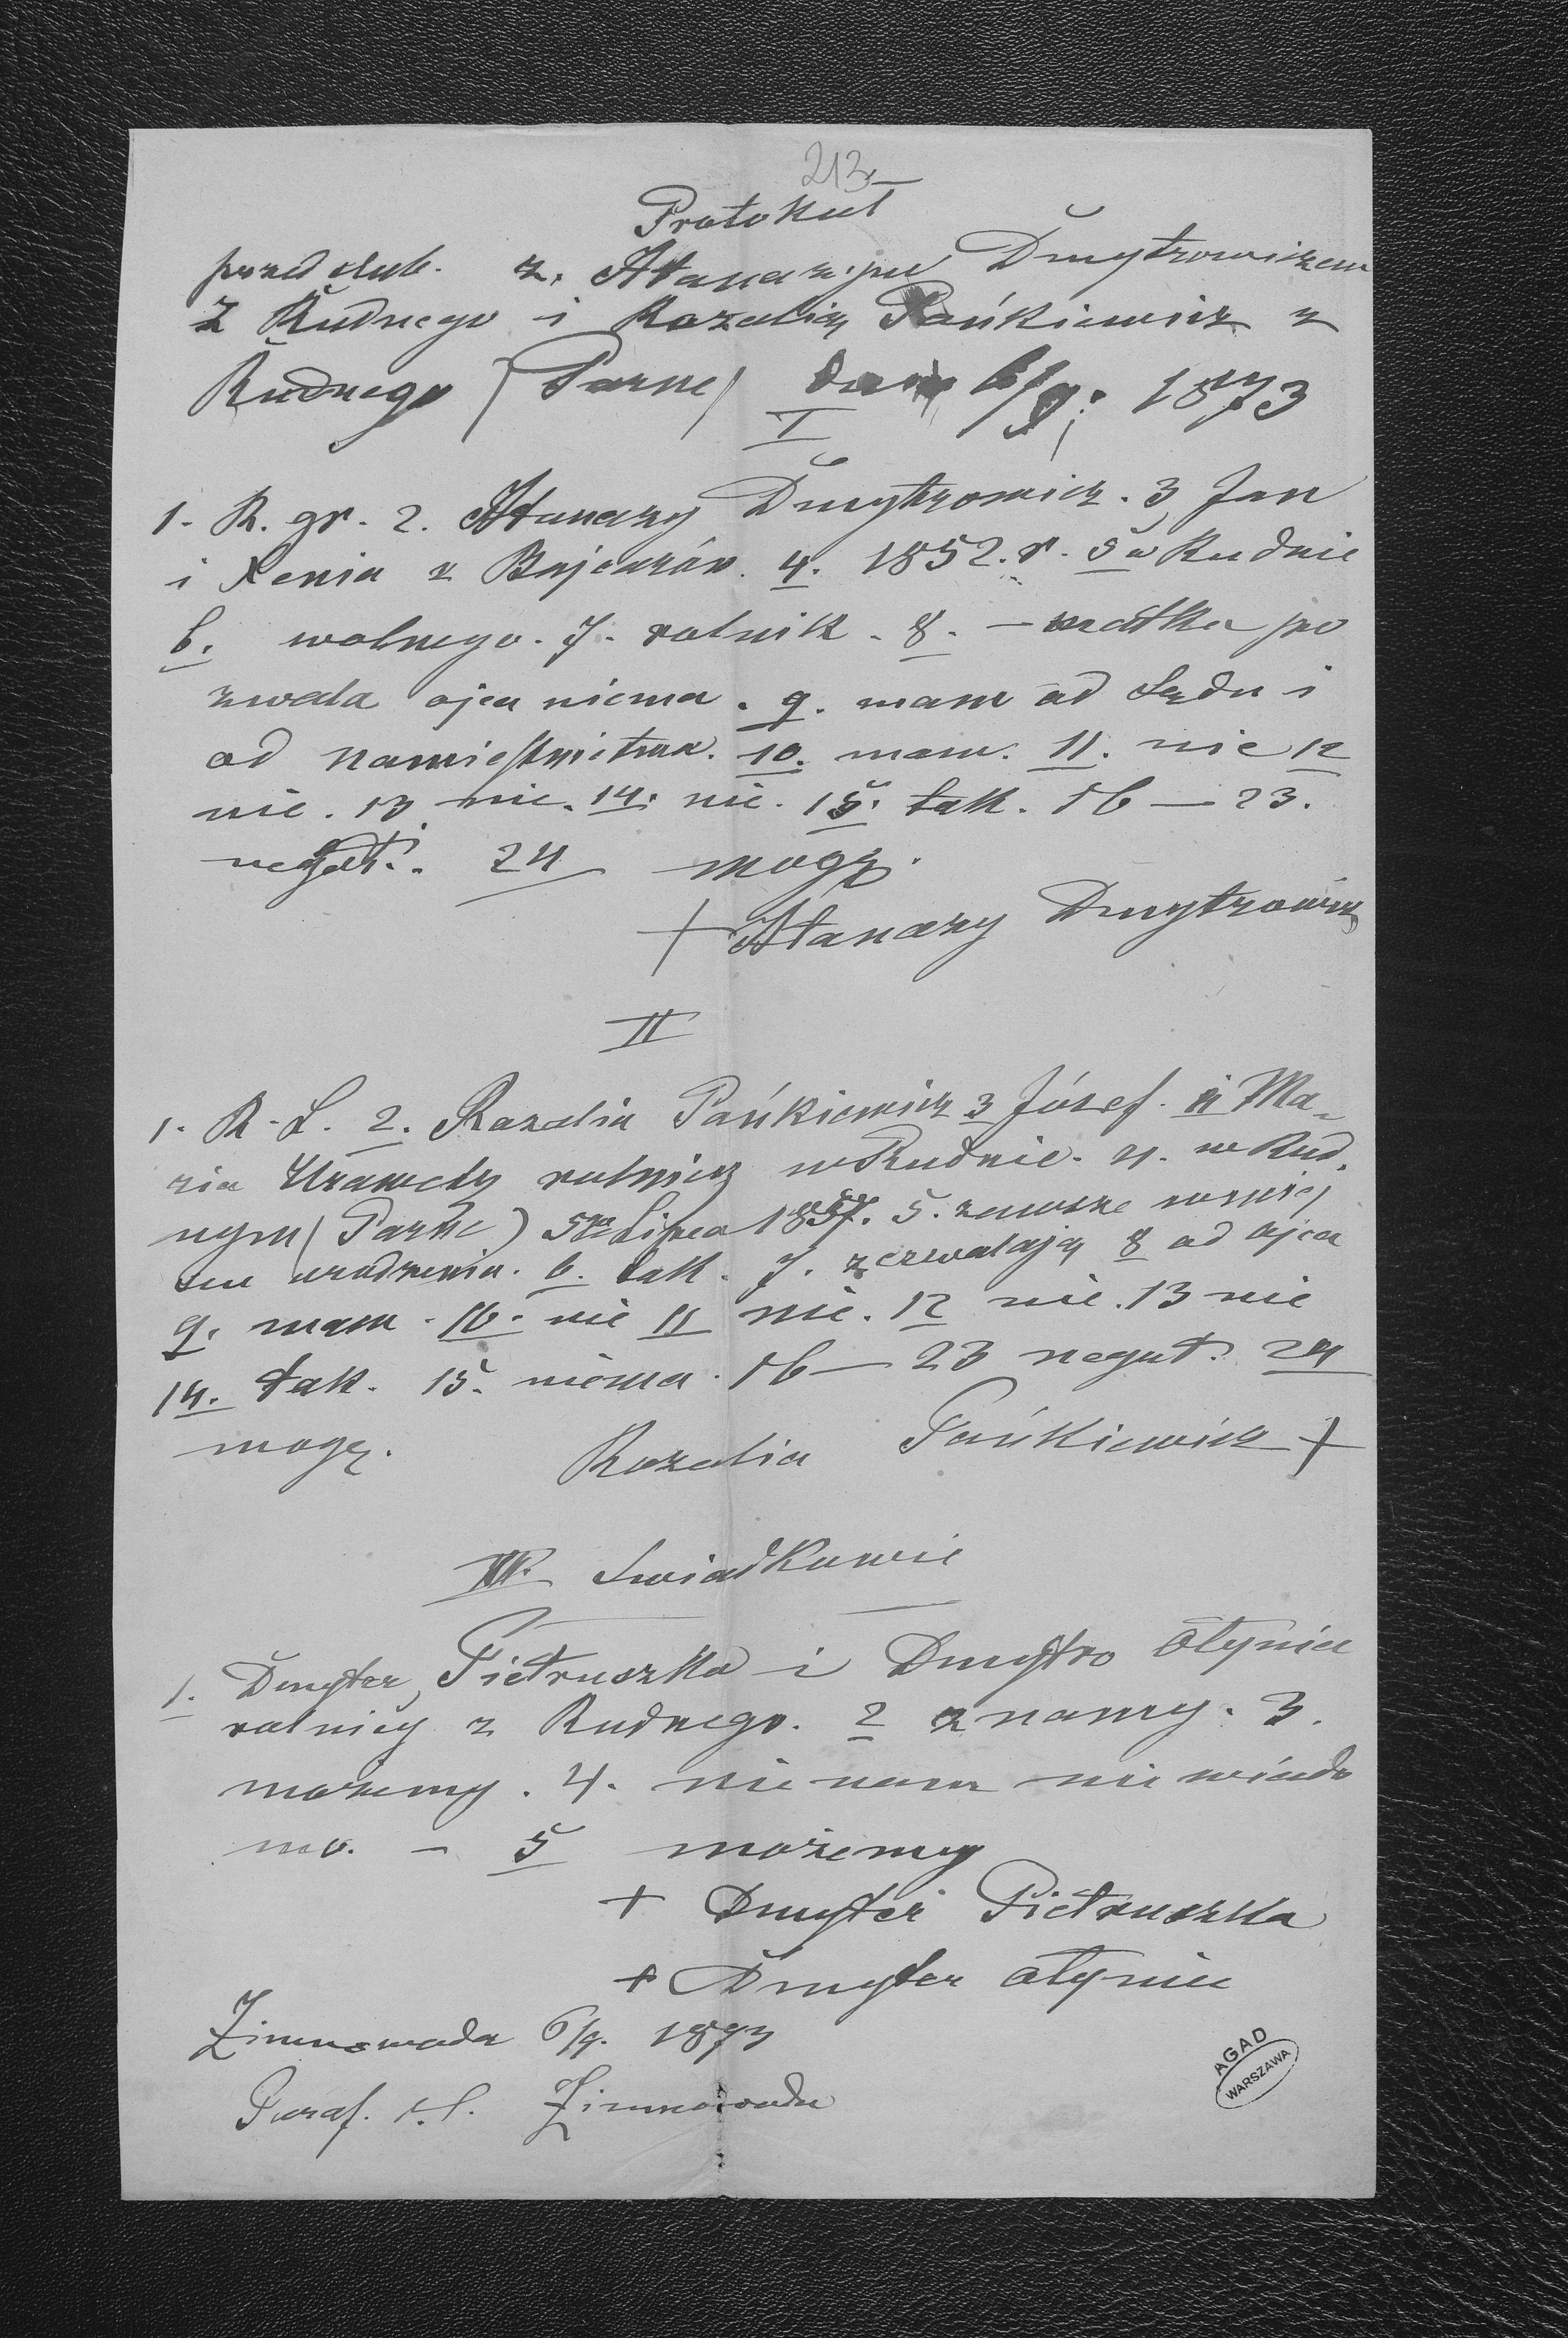 213
Protokuł
przedślub. z. Atanazym Dmytrowiczem
z Rudnego i Rozalią Pańkiewicz z
Rudnego (Parne) dnia 6/9. 1873
I
1. R. gr. 2. Atanazy Dmytrowicz. 3 Jan
i Xenia z Bojczarów. 4. 1852. r. 5 w Rudnie
6. wolnego. 7. rolnik. 8. – matka po
zwala ojca niema. 9. mam od Sądu i
od namiestnictwa. 10. mam. 11. nie 12
nie. 13 nie. 14. nie. 15. tak. 16 – 23.
negat. 24 mogę.
+ Atanazy Dmytrowicz
II
1. R. Ł. 2. Rozalia Pańkiewicz 3 Józef. i Ma-
ria rolnicy w Rudnie. 4. w Rud.
nym (Parne) 5go Lipca 1857. 5. zawsze w
urodzenia. 6. tak. 7. zezwalają 8 od ojca
9. mam. 10. nie 11 nie. 12 nie. 13 nie
14. tak. 15. niema. 16 – 23 negat. 24
mogę. Rozalia Pańkiewicz +
III. Swiadkowie
1. Dmyter Pietruszka i Dmytro Ołyniec
rolnicy z Rudnego. 2 znamy. 3.
możemy. 4. nie nam nie wiado
mo. – 5 możemy
+ Dmyter Pietruszka
+ Dmyter Ołyniec
Zimnawoda 6/9. 1873
Paraf. r. l. Zimnawoda
AGAD
WARSZAWA